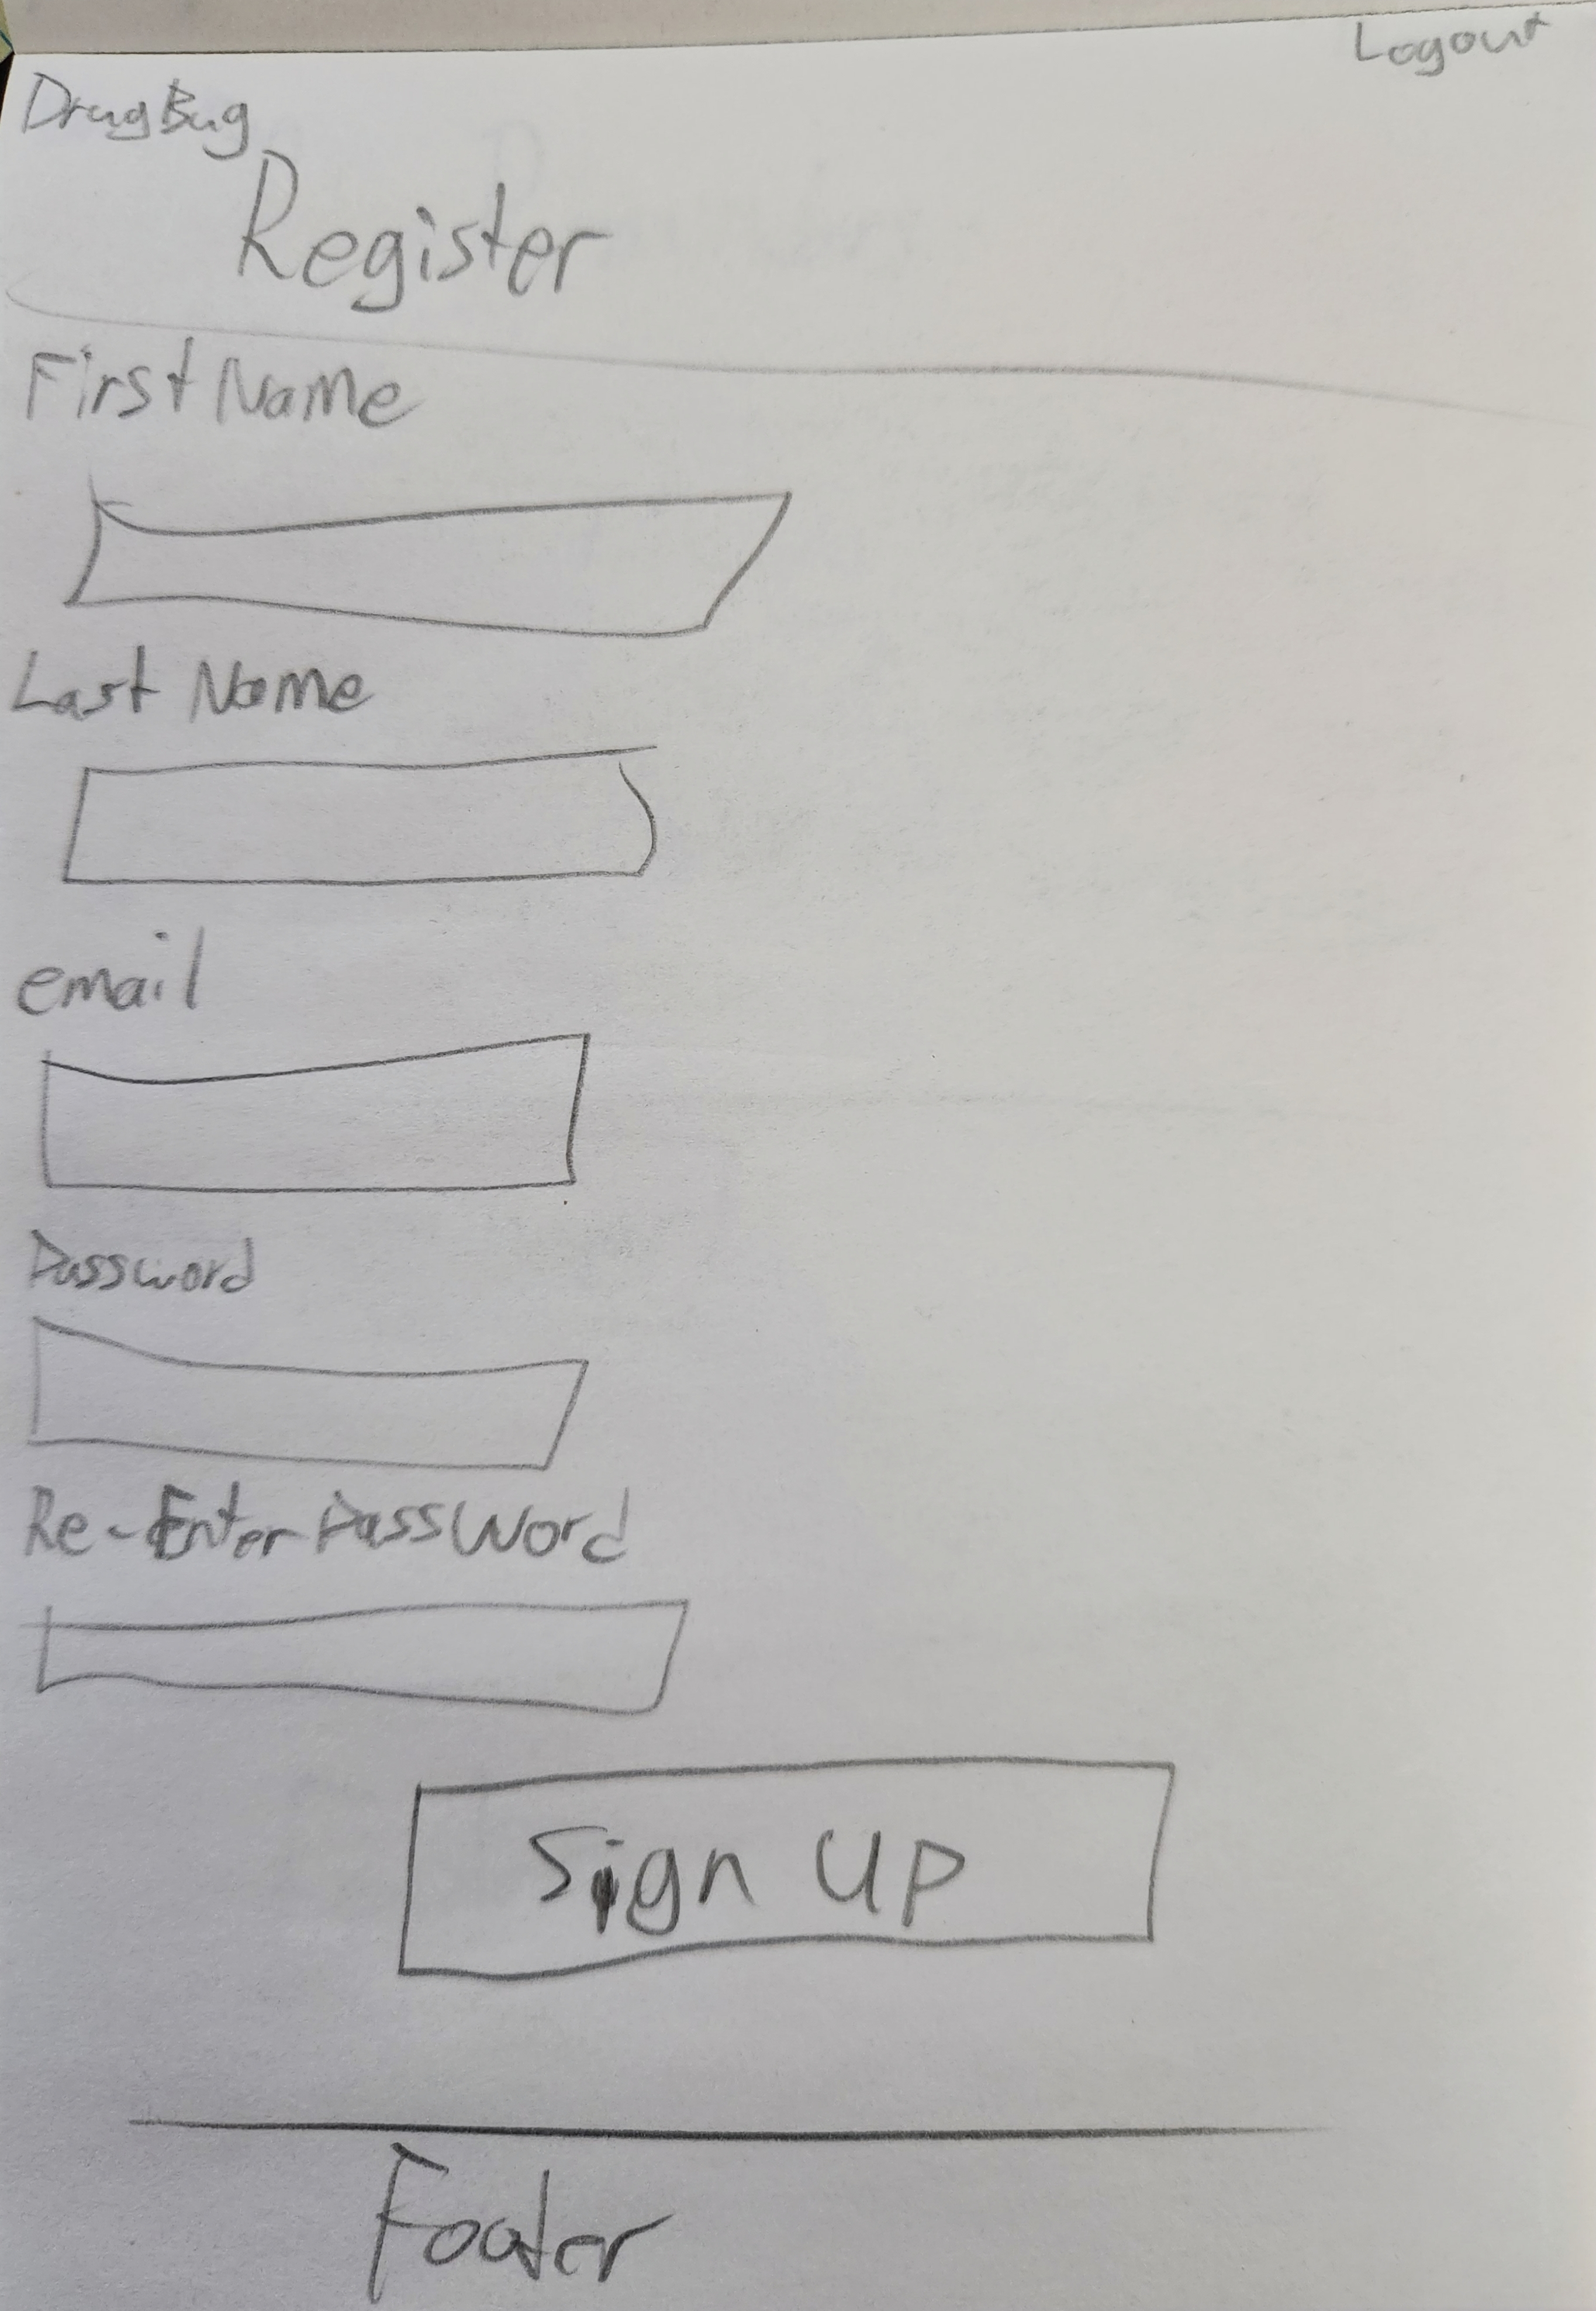 Logout
DrugBug
Register
First Name
Last Name
email
Password
Re-Enter PassWord
Sign Up
Footer